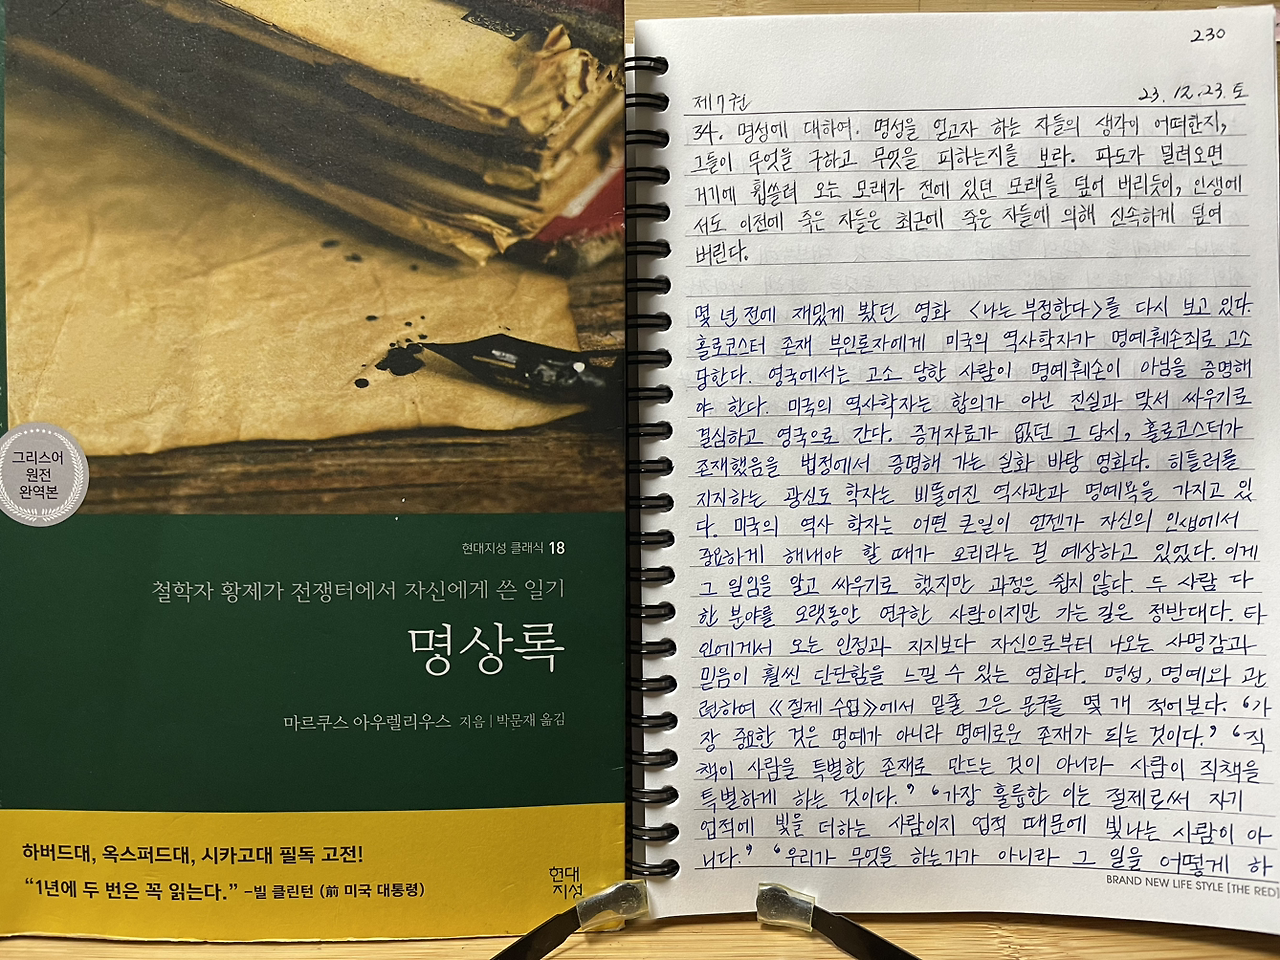 그리스어
원전
완역본
현대지성 클래식 18
철학자 황제가 전쟁터에서 자신에게 쓴 일기
명상록
마르쿠스 아우렐리우스 지음 | 박문재 옮김
하버드대, 옥스퍼드대, 시카고대 필독 고전!
“1년에 두 번은 꼭 읽는다.” –빌 클린턴 (前 미국 대통령)
현대
지성
230
제7권 23. 12. 23. 토
34. 명성에 대하여. 명성을 얻고자 하는 자들의 생각이 어떠한지,
그들이 무엇을 구하고 무엇을 피하는지를 보라. 파도가 밀려오면
거기에 휩쓸려 오는 모래가 전에 있던 모래를 덮어 버리듯이, 인생에
서도 이전에 죽은 자들은 최근에 죽은 자들에 의해 신속하게 덮여
버린다.
몇 년 전에 재밌게 봤던 영화 <나는 부정한다>를 다시 보고 있다.
홀로코스터 존재 부인론자에게 미국의 역사학자가 명예훼손죄로 고소
당한다. 영국에서는 고소 당한 사람이 명예훼손이 아님을 증명해
야 한다. 미국의 역사학자는 합의가 아닌 진실과 맞서 싸우기로
결심하고 영국으로 간다. 증거자료가 없던 그 당시, 홀로코스터가
존재했음을 법정에서 증명해 가는 실화 바탕 영화다. 히틀러를
지지하는 광신도 학자는 비뚤어진 역사관과 명예욕을 가지고 있
다. 미국의 역사 학자는 어떤 큰일이 언젠가 자신의 인생에서
중요하게 해내야 할 때가 오리라는 걸 예상하고 있었다. 이게
그 일임을 알고 싸우기로 했지만 과정은 쉽지 않다. 두 사람 다
한 분야를 오랫동안 연구한 사람이지만 가는 길은 정반대다. 타
인에게서 오는 인정과 지지보다 자신으로부터 나오는 사명감과
믿음이 훨씬 단단함을 느낄 수 있는 영화다. 명성, 명예와 관
련하여 《절제 수업》에서 밑줄 그은 문구를 몇 개 적어본다. ‘가
장 중요한 것은 명예가 아니라 명예로운 존재가 되는 것이다.’ ‘직
책이 사람을 특별한 존재로 만드는 것이 아니라 사람이 직책을
특별하게 하는 것이다.’ ‘가장 훌륭한 이는 절제로써 자기
업적에 빛을 더하는 사람이지 업적 때문에 빛나는 사람이 아
니다.’ ‘우리가 무엇을 하는가가 아니라 그 일을 어떻게 하
BRAND NEW LIFE STYLE [THE RED]